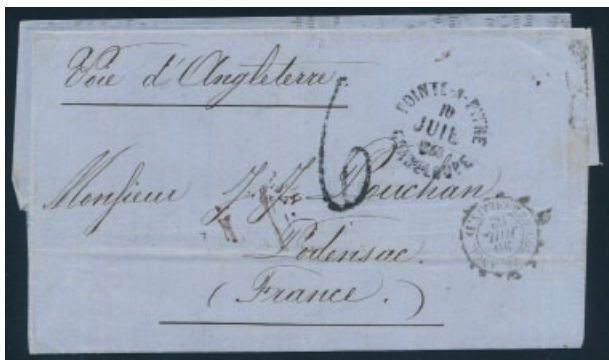 Voie d'Angleterre.
6
POINTE-A-PITRE
10
JUIL
GUADELOUPE
Monsieur J. J. Pouchan
Podensac.
(France.)